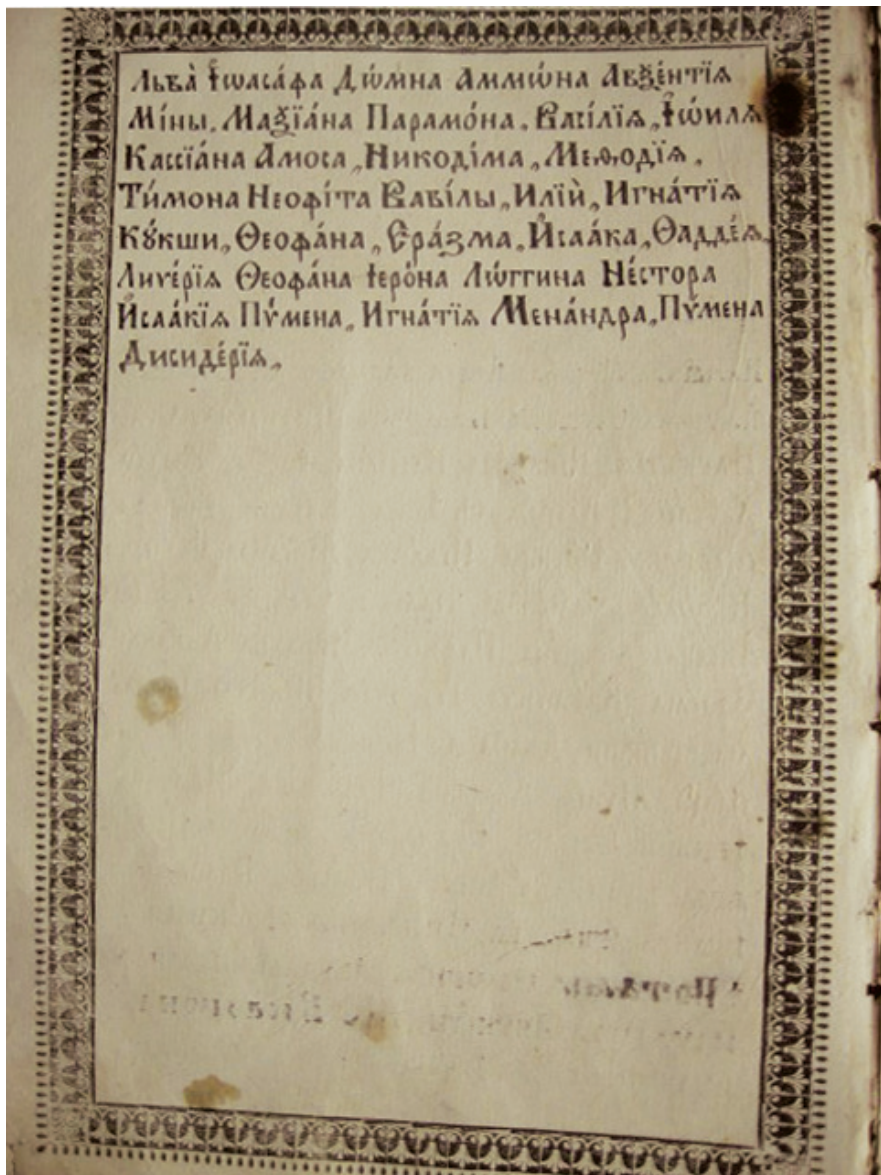 Льва̀ Іѡаса́фа Дѡ́мна Аммѡ́на Авѯе́нтїѧ
Ми́ны, Маѯїа́на Парамо́на, Васі́лїѧ, Іѡ́илѧ
Кассїа́на А́моса, Никоді́ма, Меѳо́дїѧ,
Ти́мона Неофі́та Вави́лы, Илїи̇̀, Игна́тїѧ
Кꙋ́кши, Ѳеофа́на, Єра́зма, И҆саа́ка, Ѳадде́ѧ,
Лиѵе́рїѧ Ѳеофа́на Іеро́на Лѡ́ггина Не́стора
И҆саа́кїѧ Пѵ́мена, Игна́тїѧ Мена́ндра, Пѵ́мена
Дисиде́рїѧ,